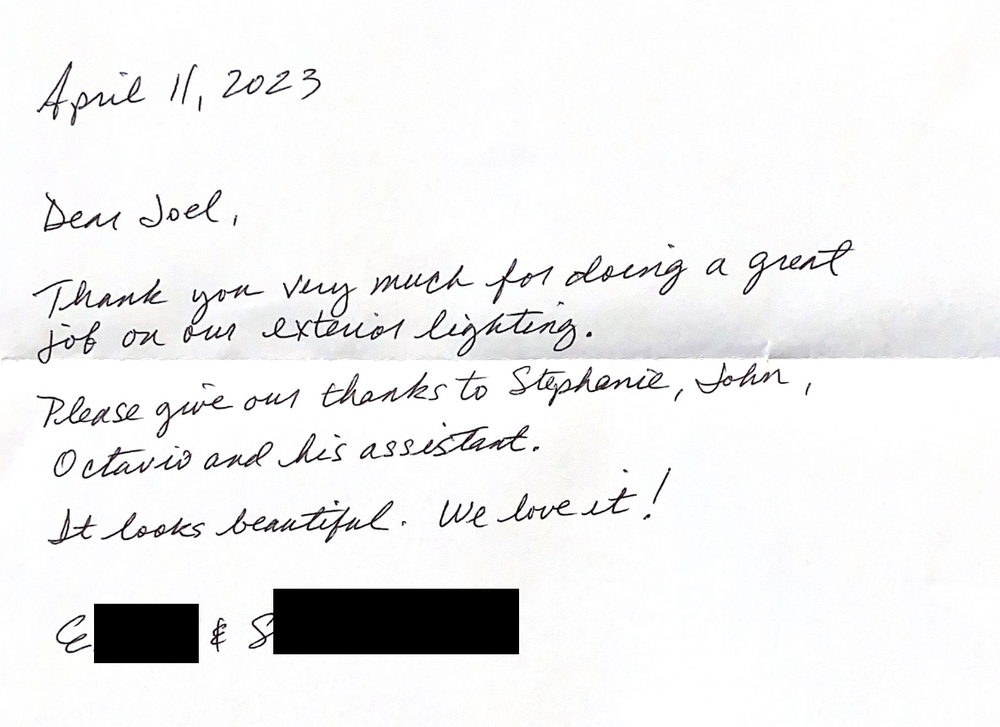 April 11, 2023
Dear Joel,
Thank you very much for doing a great
job on our exterior lighting.
Please give our thanks to Stephanie, John,
Octavio and his assistant.
It looks beautiful. We love it!
E & S